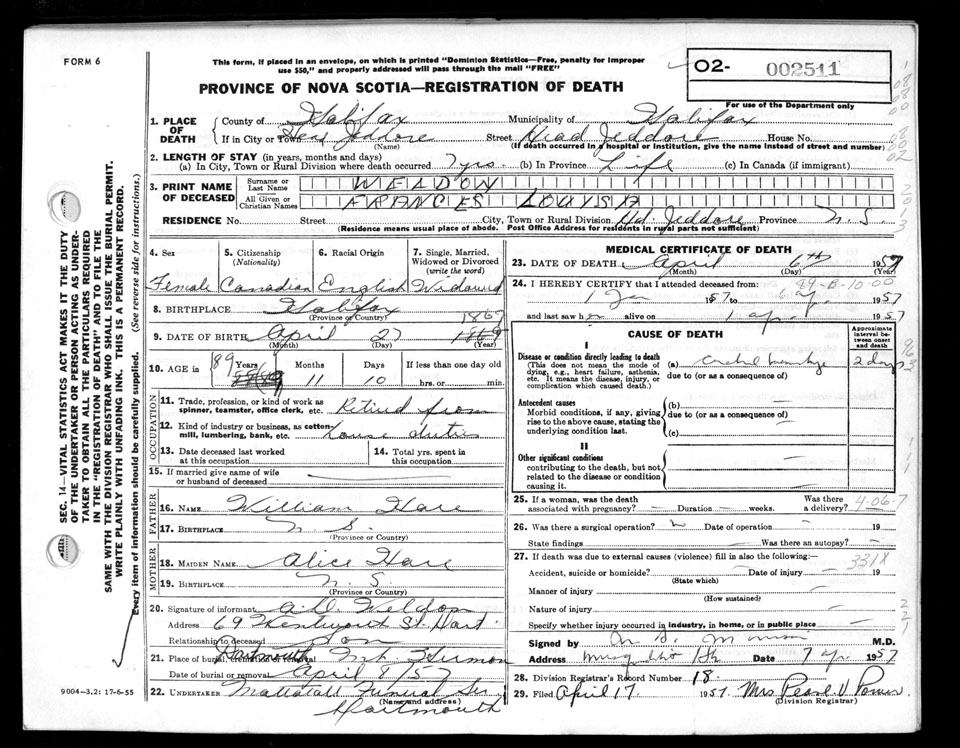 FORM 6
This form, if placed in an envelope, on which is printed "Dominion Statistics—Free, penalty for improper
use $50," and properly addressed will pass through the mail "FREE"
O2- 002511
For use of the Department only
PROVINCE OF NOVA SCOTIA—REGISTRATION OF DEATH
1. PLACE OF DEATH
County of Halifax Municipality of Halifax
If in City or Town Head Jeddore Street Head Jeddore House No.
(Name) (If death occurred in a hospital or institution, give name instead of street and number)
2. LENGTH OF STAY (in years, months and days)
(a) In City, Town or Rural Division where death occurred 7 yrs. (b) In Province Life (c) In Canada (if immigrant)
3. PRINT NAME OF DECEASED
Surname or Last Name
All Given or Christian Names FRANCIES LOUISA
RESIDENCE No. Street City, Town or Rural Division Hd. Jeddore Province N.S.
(Residence means usual place of abode. Post Office Address for residents in rural parts not sufficient)
4. Sex Female
5. Citizenship (Nationality) Canadian
6. Racial Origin English
7. Single, Married, Widowed or Divorced (write the word) Widowed
8. BIRTHPLACE Halifax
(Province or Country)
9. DATE OF BIRTH April 27 1867
(Month) (Day) (Year)
10. AGE in 89 Years 11 Months 10 Days If less than one day old hrs. or min.
OCCUPATION
11. Trade, profession, or kind of work as spinner, teamster, office clerk, etc. Retired from
12. Kind of industry or business, as cotton-mill, lumbering, bank, etc. house duties
13. Date deceased last worked at this occupation
14. Total yrs. spent in this occupation
15. If married give name of wife or husband of deceased
FATHER
16. NAME William Hare
17. BIRTHPLACE N.S.
(Province or Country)
MOTHER
18. MAIDEN NAME Alice Hare
19. BIRTHPLACE N.S
(Province or Country)
20. Signature of informant
Address 69 Wentworth St. Dart.
Relationship to deceased Son
21. Place of burial, cremation or removal Dartmouth Mt. Hermon
Date of burial or removal April 8/57
22. UNDERTAKER Mattatall Funeral Ser.
(Name and address)
Dartmouth
MEDICAL CERTIFICATE OF DEATH
23. DATE OF DEATH April 6th 1957
(Month) (Day) (Year)
24. I HEREBY CERTIFY that I attended deceased from: 89-B-10-00
1 Jan 1957 to 6 ap. 1957
and last saw h alive on 1 ap. 1957
CAUSE OF DEATH
Approximate interval between onset and death
I
Disease or condition directly leading to death (a) 2 days
(This does not mean the mode of dying, e.g., heart failure, asthenia, etc. It means the disease, injury, or complication which caused death.)
due to (or as a consequence of)
Antecedent causes (b)
Morbid conditions, if any, giving rise to the above cause, stating the underlying condition last.
due to (or as a consequence of)
(c)
II
Other significant conditions
contributing to the death, but not related to the disease or condition causing it.
25. If a woman, was the death associated with pregnancy? Duration weeks. Was there a delivery? 4-06-7
26. Was there a surgical operation? Date of operation 19
State findings Was there an autopsy?
27. If death was due to external causes (violence) fill in also the following:— 331X
Accident, suicide or homicide? Date of injury 19
(State which)
Manner of injury
(How sustained)
Nature of injury
Specify whether injury occurred in industry, in home, or in public place
Signed by M.D.
Address Date 7 ap. 1957
28. Division Registrar's Record Number 18.
29. Filed April 17 1957. Mrs Pearl V
(Division Registrar)
SEC. 14—VITAL STATISTICS ACT MAKES IT THE DUTY
OF THE UNDERTAKER OR PERSON ACTING AS UNDER-
TAKER TO OBTAIN ALL THE PARTICULARS REQUIRED
IN THE "REGISTRATION OF DEATH" AND TO FILE THE
SAME WITH THE DIVISION REGISTRAR WHO SHALL ISSUE THE BURIAL PERMIT.
WRITE PLAINLY WITH UNFADING INK. THIS IS A PERMANENT RECORD.
Every item of information should be carefully supplied. (See reverse side for instructions.)
9004—3.2: 17-6-55